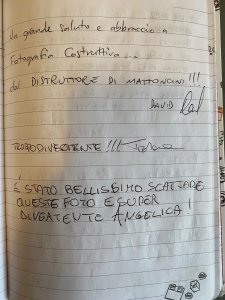 Un grande saluto e abbraccio a
Fotografia Costruttiva...
dal DISTRUTTORE DI MATTONCINI!!!
DAVID
TROPPO DIVERTENTE!!!
È STATO BELLISSIMO SCATTARE
QUESTE FOTO E SUPER
DIVERTENTE ANGELICA!